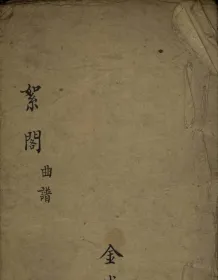 絮閣
曲譜
金